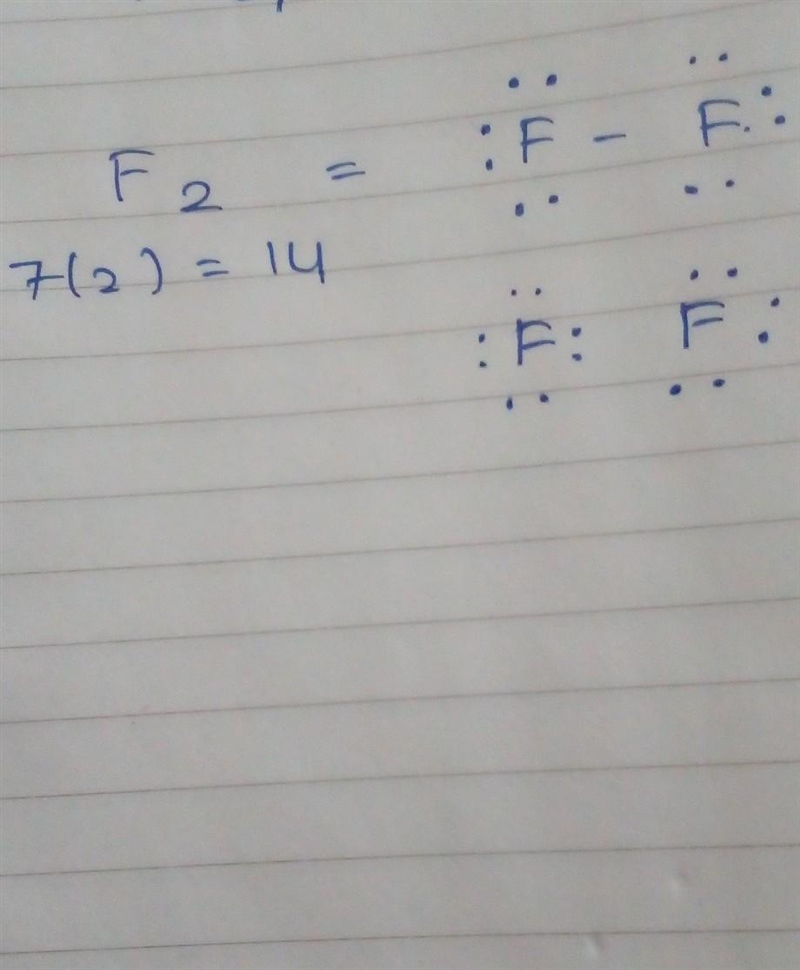 F2 = :F̤̈ - F̤̈:
7(2) = 14
:F̤̈: F̤̈: